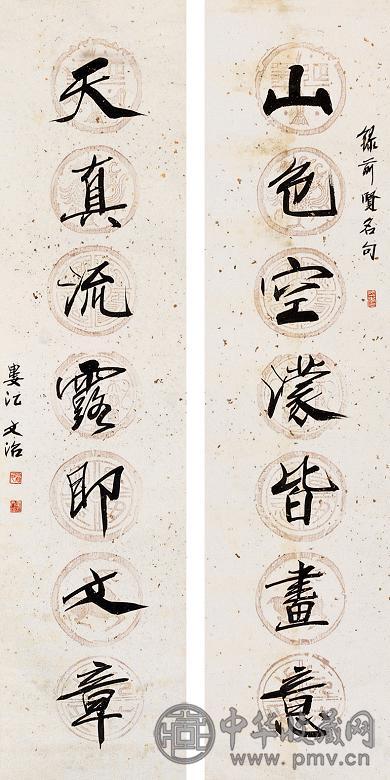 山色空濛皆畫意
錄前賢名句
天真流露即文章
婁江文治
中华收藏网
www.pmv.cn